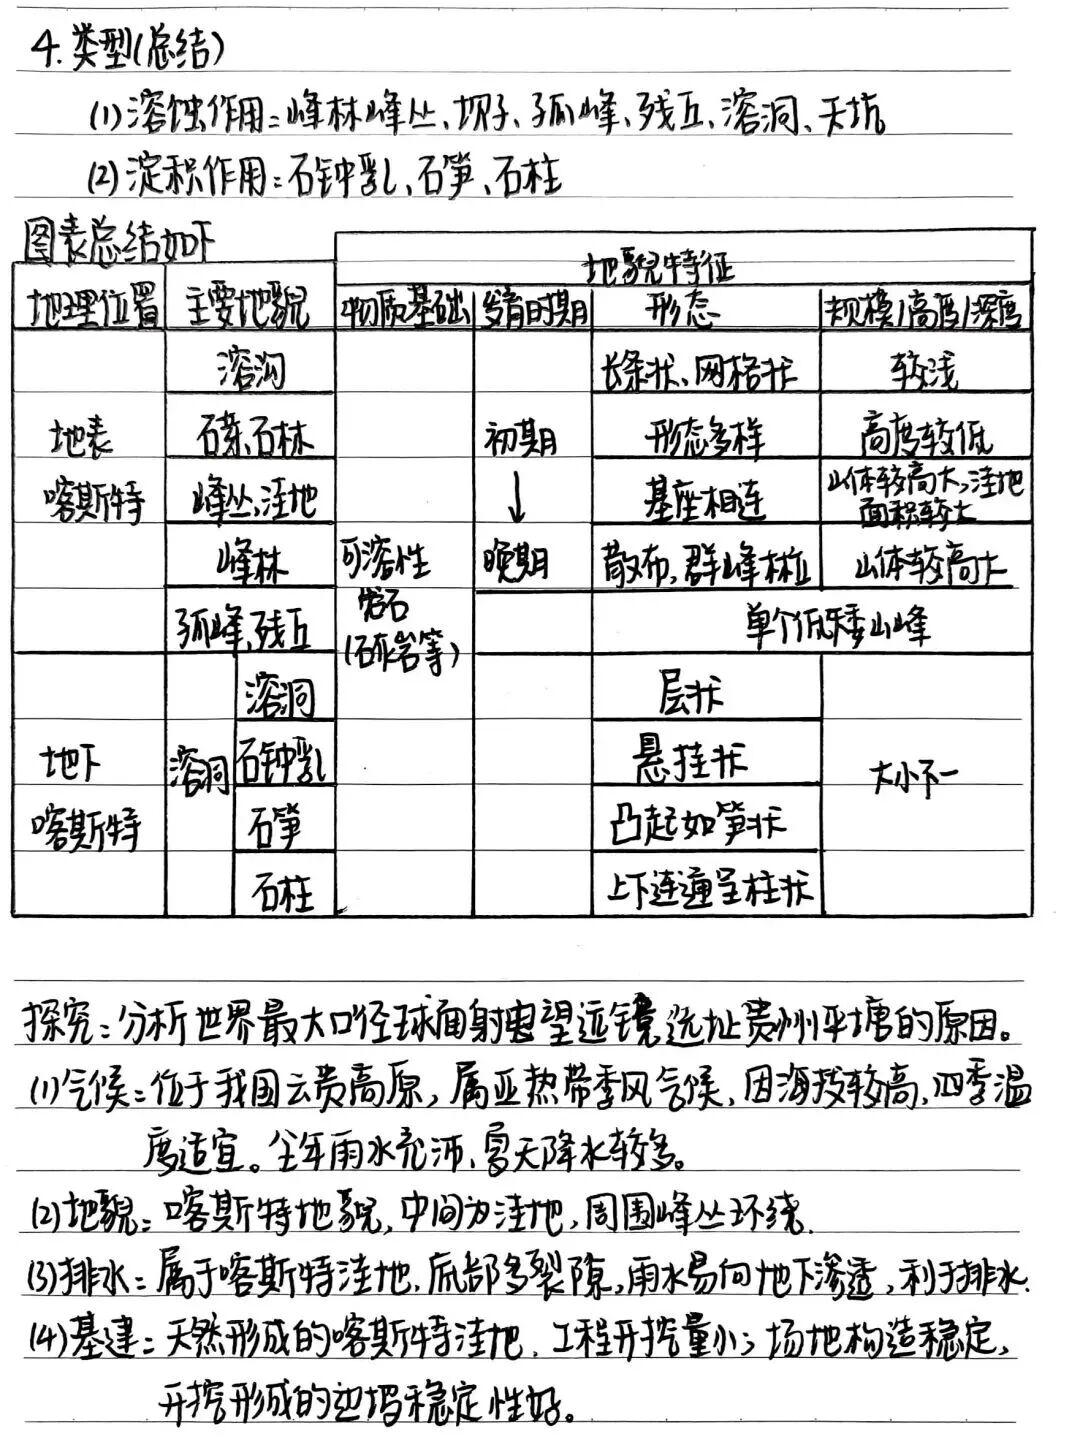 4.类型(总结)
(1)溶蚀作用:峰林峰丛、坝子、孤峰、残丘、溶洞、天坑
(2)淀积作用:石钟乳、石笋、石柱
图表总结如下
地貌特征
地理位置 主要地貌 物质基础 发育时期 形态 规模/高度/深度
溶沟 长条状、网格状 较浅
地表 石芽、石林 初期 形态多样 高度较低
喀斯特 峰丛、洼地 ↓ 基座相连 山体较高大,洼地
面积较大
峰林 可溶性 晚期 散布,群峰林立 山体较高大
孤峰、残丘 岩石 单个低矮山峰
(石灰岩等)
溶洞 层状
地下 溶洞 石钟乳 悬挂状 大小不一
喀斯特 石笋 凸起如笋状
石柱 上下连通呈柱状
探究:分析世界最大口径球面射电望远镜选址贵州平塘的原因。
(1)气候:位于我国云贵高原,属亚热带季风气候,因海拔较高,四季温
度适宜。全年雨水充沛,夏天降水较多。
(2)地貌:喀斯特地貌,中间为洼地,周围峰丛环绕.
(3)排水:属于喀斯特洼地,底部多裂隙,雨水易向地下渗透,利于排水.
(4)基建:天然形成的喀斯特洼地,工程开挖量小;场地构造稳定,
开挖形成的边坡稳定性好。